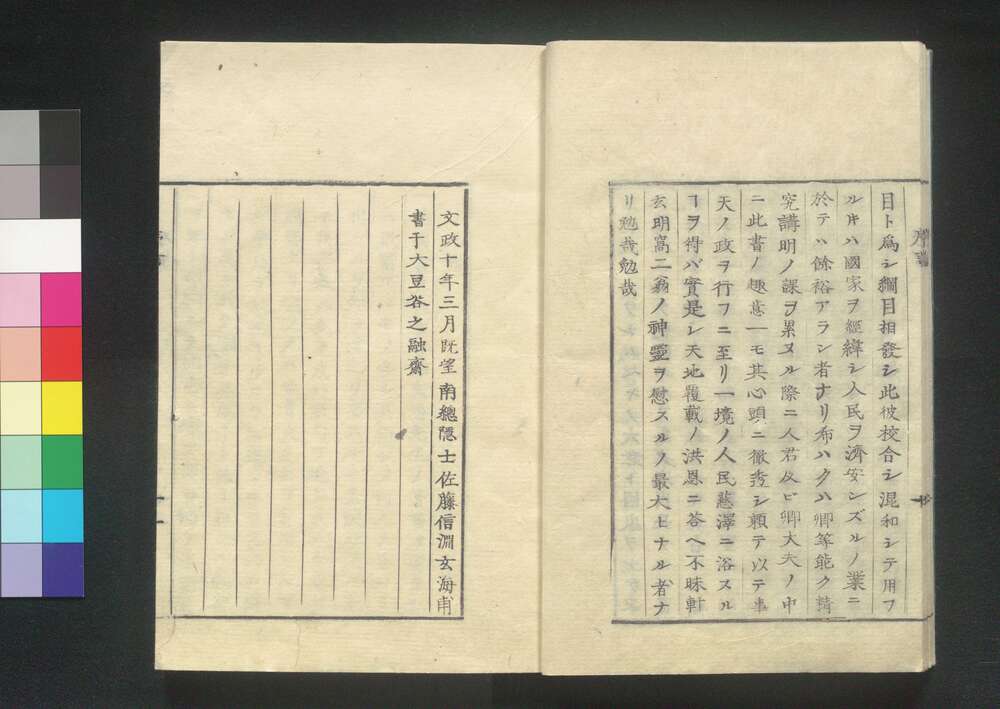 目ト爲シ綱目相發シ此彼校合シ混和シテ用フ
ルキハ國家ヲ經緯シ人民ヲ濟安シズルノ業ニ
於テハ餘裕アラン者ナリ布ハクハ卿等能ク精
究講明ノ課ヲ累ヌル際ニ人君及ビ卿大夫ノ中
ニ此書ノ趣意一モ其心頭ニ徹透シ頼テ以テ事
天ノ政ヲ行フニ至リ一境ノ人民慈澤ニ浴スル
ヿヲ得バ實是レ天地覆載ノ洪恩ニ答ヘ不昧軒
玄明窩二翁ノ神靈ヲ慰スルノ最大ヒナル者ナ
リ勉哉勉哉
文政十年三月既望 南總隱士佐藤信淵玄海甫
書于大豆谷之融齋